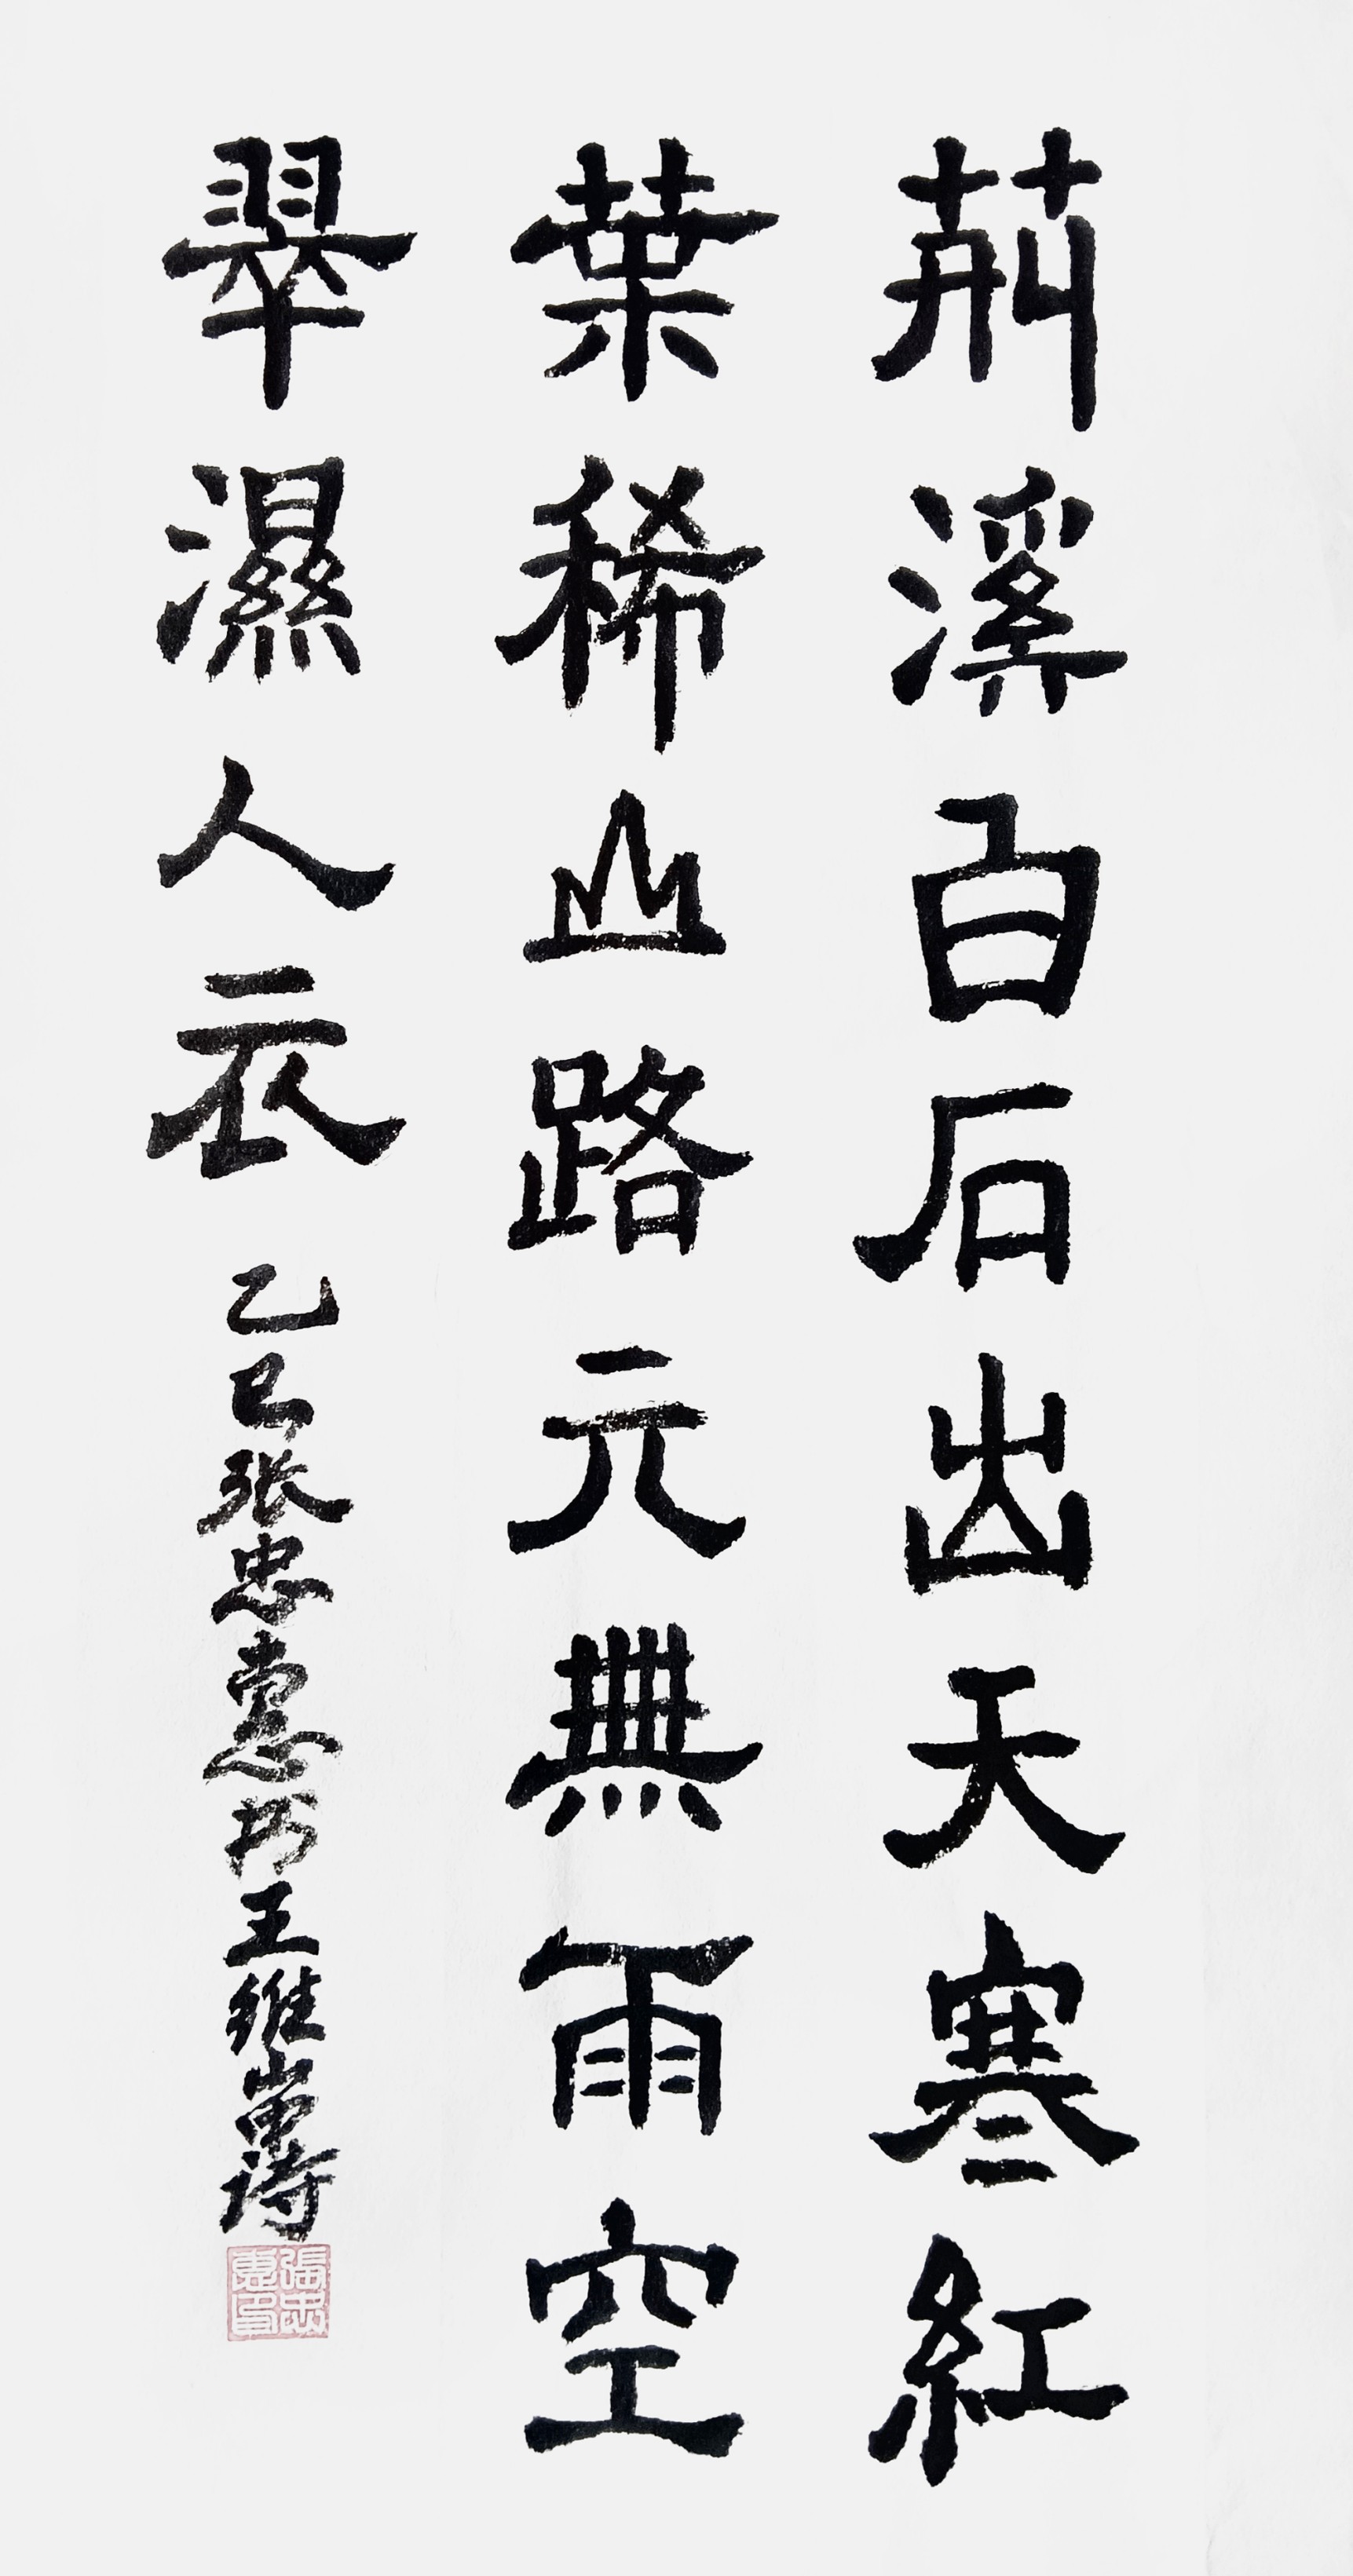 荊溪白石出天寒紅
葉稀山路元無雨空
翠濕人衣 乙巳张忠书王維山中詩
張忠印